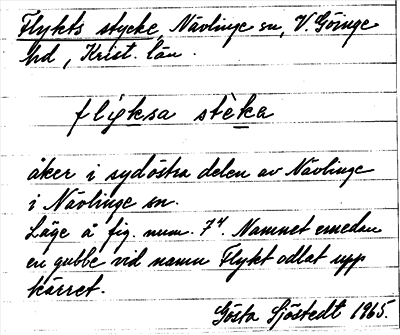 Flykts stycke, Nävlinge sn, V. Göinge
hrd, Krist. län.
flygksa stèka
åker i sydöstra delen av Nävlinge
i Nävlinge sn.
Läge å fig. num. 74. Namnet emedan
en gubbe vid namn Flykt odlat upp
kärret.
Gösta Sjöstedt 1965.